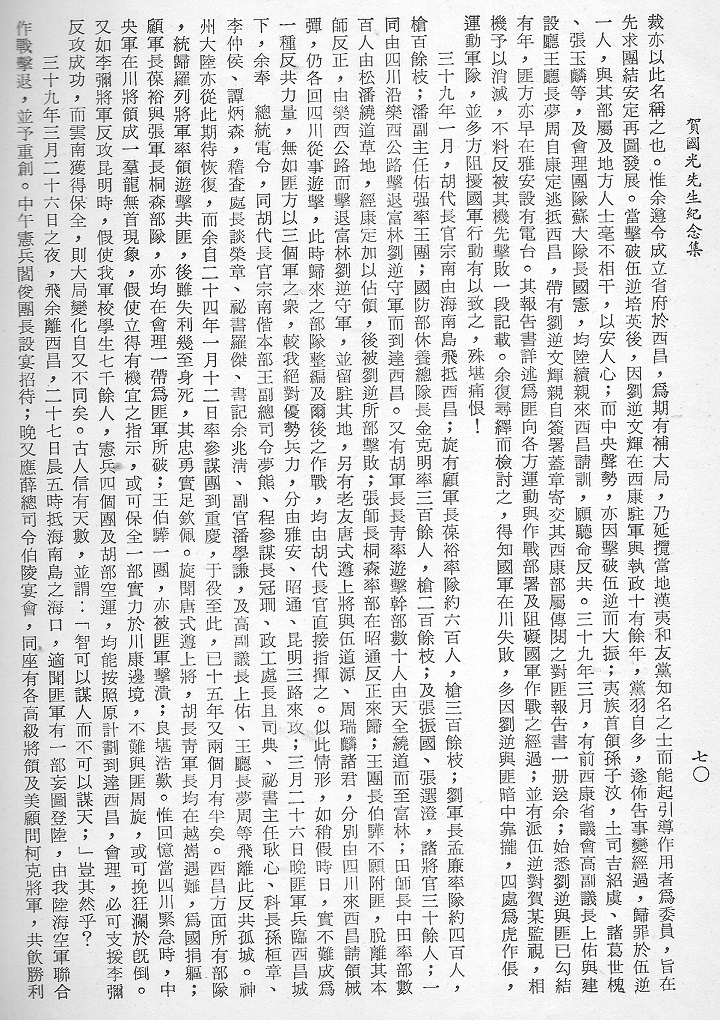 賀國光先生紀念集
七〇
裁亦以此名稱之也。惟余遵令成立省府於西昌，爲期有補大局，乃延攬當地漢夷和友黨知名之士而能起引導作用者爲委員，旨在
先求團結安定再圖發展。當擊破伍逆培英後，因劉逆文輝在西康駐軍與執政十有餘年，黨羽自多，遂佈告事變經過，歸罪於伍逆
一人，與其部屬及地方人士毫不相干，以安人心；而中央聲勢，亦因擊破伍逆而大振；夷族首領孫子汶，土司吉紹虞、諸葛世槐
、張玉麟等，及會理團隊蘇大隊長國憲，均陸續親來西昌請訓，願聽命反共。三十九年三月，有前西康省議會高副議長上佑與建
設廳王廳長夢周自康定逃抵西昌，帶有劉逆文輝親自簽署蓋章寄交其西康部屬傳閱之對匪報告書一册送余；始悉劉逆與匪已勾結
有年，匪方亦早在雅安設有電台。其報告書詳述爲匪向各方運動與作戰部署及阻礙國軍作戰之經過；並有派伍逆對賀某監視，相
機予以消滅，不料反被其機先擊敗一段記載。余復尋繹而檢討之，得知國軍在川失敗，多因劉逆與匪暗中靠攏，四處爲虎作倀，
運動軍隊，並多方阻擾國軍行動有以致之，殊堪痛恨！
三十九年一月，胡代長官宗南由海南島飛抵西昌；旋有顧軍長葆裕率隊約六百人，槍三百餘枝；劉軍長孟廉率隊約四百人，
槍百餘枝；潘副主任佑强率王團；國防部休養總隊長金克明率三百餘人，槍二百餘枝；及張振國、張選澄，諸將官三十餘人；一
同由四川沿樂西公路擊退富林劉逆守軍而到達西昌。又有胡軍長長青率遊擊幹部數十人由天全繞道而至富林；田師長中田率部數
百人由松潘繞道草地，經康定加以佔領，後被劉逆所部擊敗；張師長桐森率部在昭通反正來歸；王團長伯驊不願附匪，脫離其本
師反正，由樂西公路而擊退富林劉逆守軍，並留駐其地，另有老友唐式遵上將與伍道源、周瑞麟諸君，分別由四川來西昌請領械
彈，仍各回四川從事遊擊，此時歸來之部隊整編及爾後之作戰，均由胡代長官直接指揮之。似此情形，如稍假時日，實不難成爲
一種反共力量，無如匪方以三個軍之衆，較我絕對優勢兵力，分由雅安、昭通、昆明三路來攻；三月二十六日晚匪軍兵臨西昌城
下，余奉　總統電令，同胡代長官宗南偕本部王副總司令夢熊、程參謀長冠珊、政工處長且司典、祕書主任耿心、科長孫桓章、
李仲侯、譚炳森，稽查處長談榮章、祕書羅傑、書記余兆淸、副官潘學謙，及高副議長上佑、王廳長夢周等飛離此反共孤城。神
州大陸亦從此期待恢復，而余自二十四年一月十二日率參謀團到重慶，于役至此，已十五年又兩個月有半矣。西昌方面所有部隊
，統歸羅列將軍率領遊擊共匪，後雖失利幾至身死，其忠勇實足欽佩。旋聞唐式遵上將，胡長青軍長均在越嶲遇難，爲國捐軀；
顧軍長葆裕與張軍長桐森部隊，亦均在會理一帶爲匪軍所破；王伯驊一團，亦被匪軍擊潰；良堪浩歎。惟回憶當四川緊急時，中
央軍在川將領成一羣龍無首現象，假使立得有機宜之指示，或可保全一部實力於川康邊境，不難與匪周旋，或可挽狂瀾於旣倒。
又如李彌將軍反攻昆明時，假使我軍校學生七千餘人，憲兵四個團及胡部空運，均能按照原計劃到達西昌，會理，必可支援李彌
反攻成功，而雲南獲得保全，則大局變化自又不同矣。古人信有天數，並謂：「智可以謀人而不可以謀天；」豈其然乎？
三十九年三月二十六日之夜，飛余離西昌，二十七日晨五時抵海南島之海口，適聞匪軍有一部妄圖登陸，由我陸海空軍聯合
作戰擊退，並予重創。中午憲兵閣俊團長設宴招待；晚又應薛總司令伯陵宴會，同座有各高級將領及美顧問柯克將軍，共飲勝利